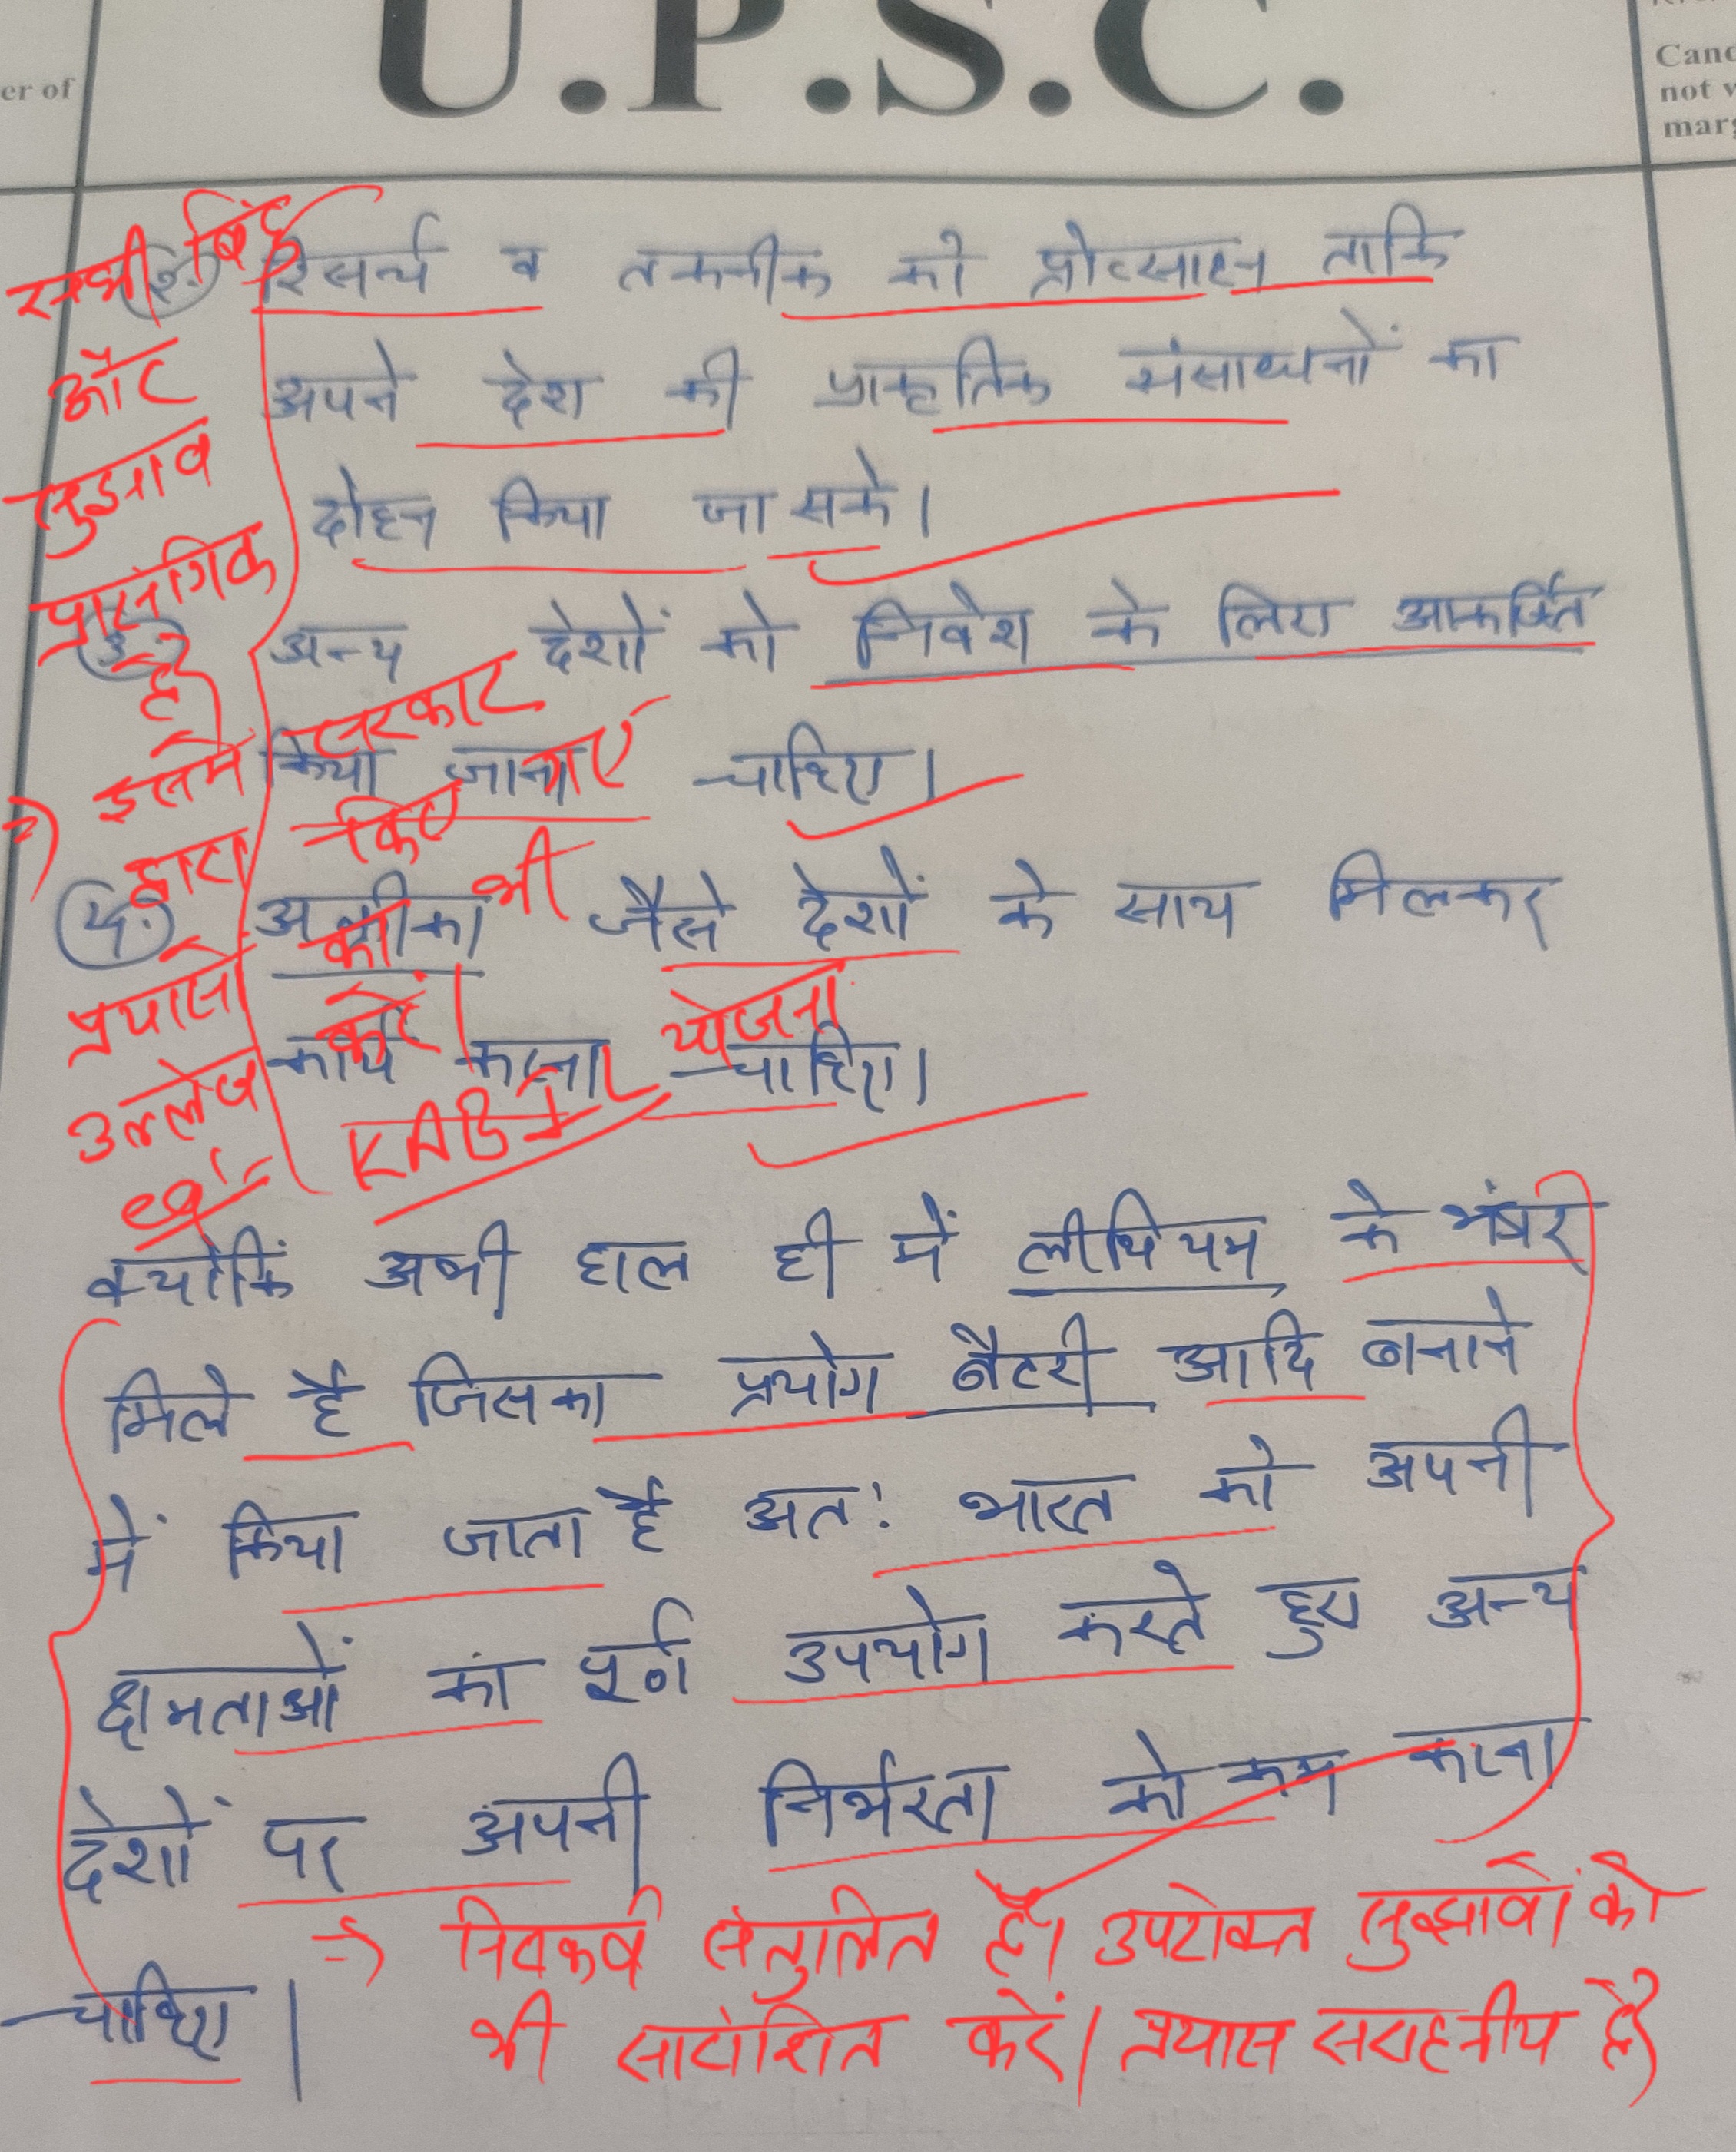 er of
U.P.S.C.
Canc
not v
marg
2. रिसर्च व तकनीक को प्रोत्साहन ताकि
अपने देश की प्राकृतिक संसाधनों का
दोहन किया जा सके।
3. अन्य देशों को निवेश के लिए आकर्षित
किया जाना चाहिए।
4. अफ्रीका जैसे देशों के साथ मिलकर
कार्य करना चाहिए।
क्योंकि अभी हाल ही में लीथियम के भंडार
मिले है जिसका प्रयोग बैटरी आदि बनाने
में किया जाता है अतः भारत को अपनी
क्षमताओं का पूर्ण उपयोग करते हुए अन्य
देशों पर अपनी निर्भरता को कम करना
चाहिए।
सभी बिंदु
और
सुझाव
प्रासंगिक
है
⇒ इसमें सरकार
द्वारा किए गए
प्रयासों का भी
उल्लेख करें।
eg:- KABIL योजना
⇒ निष्कर्ष संतुलित है। उपरोक्त सुझावों को
भी सारांशित करें। प्रयास सराहनीय है